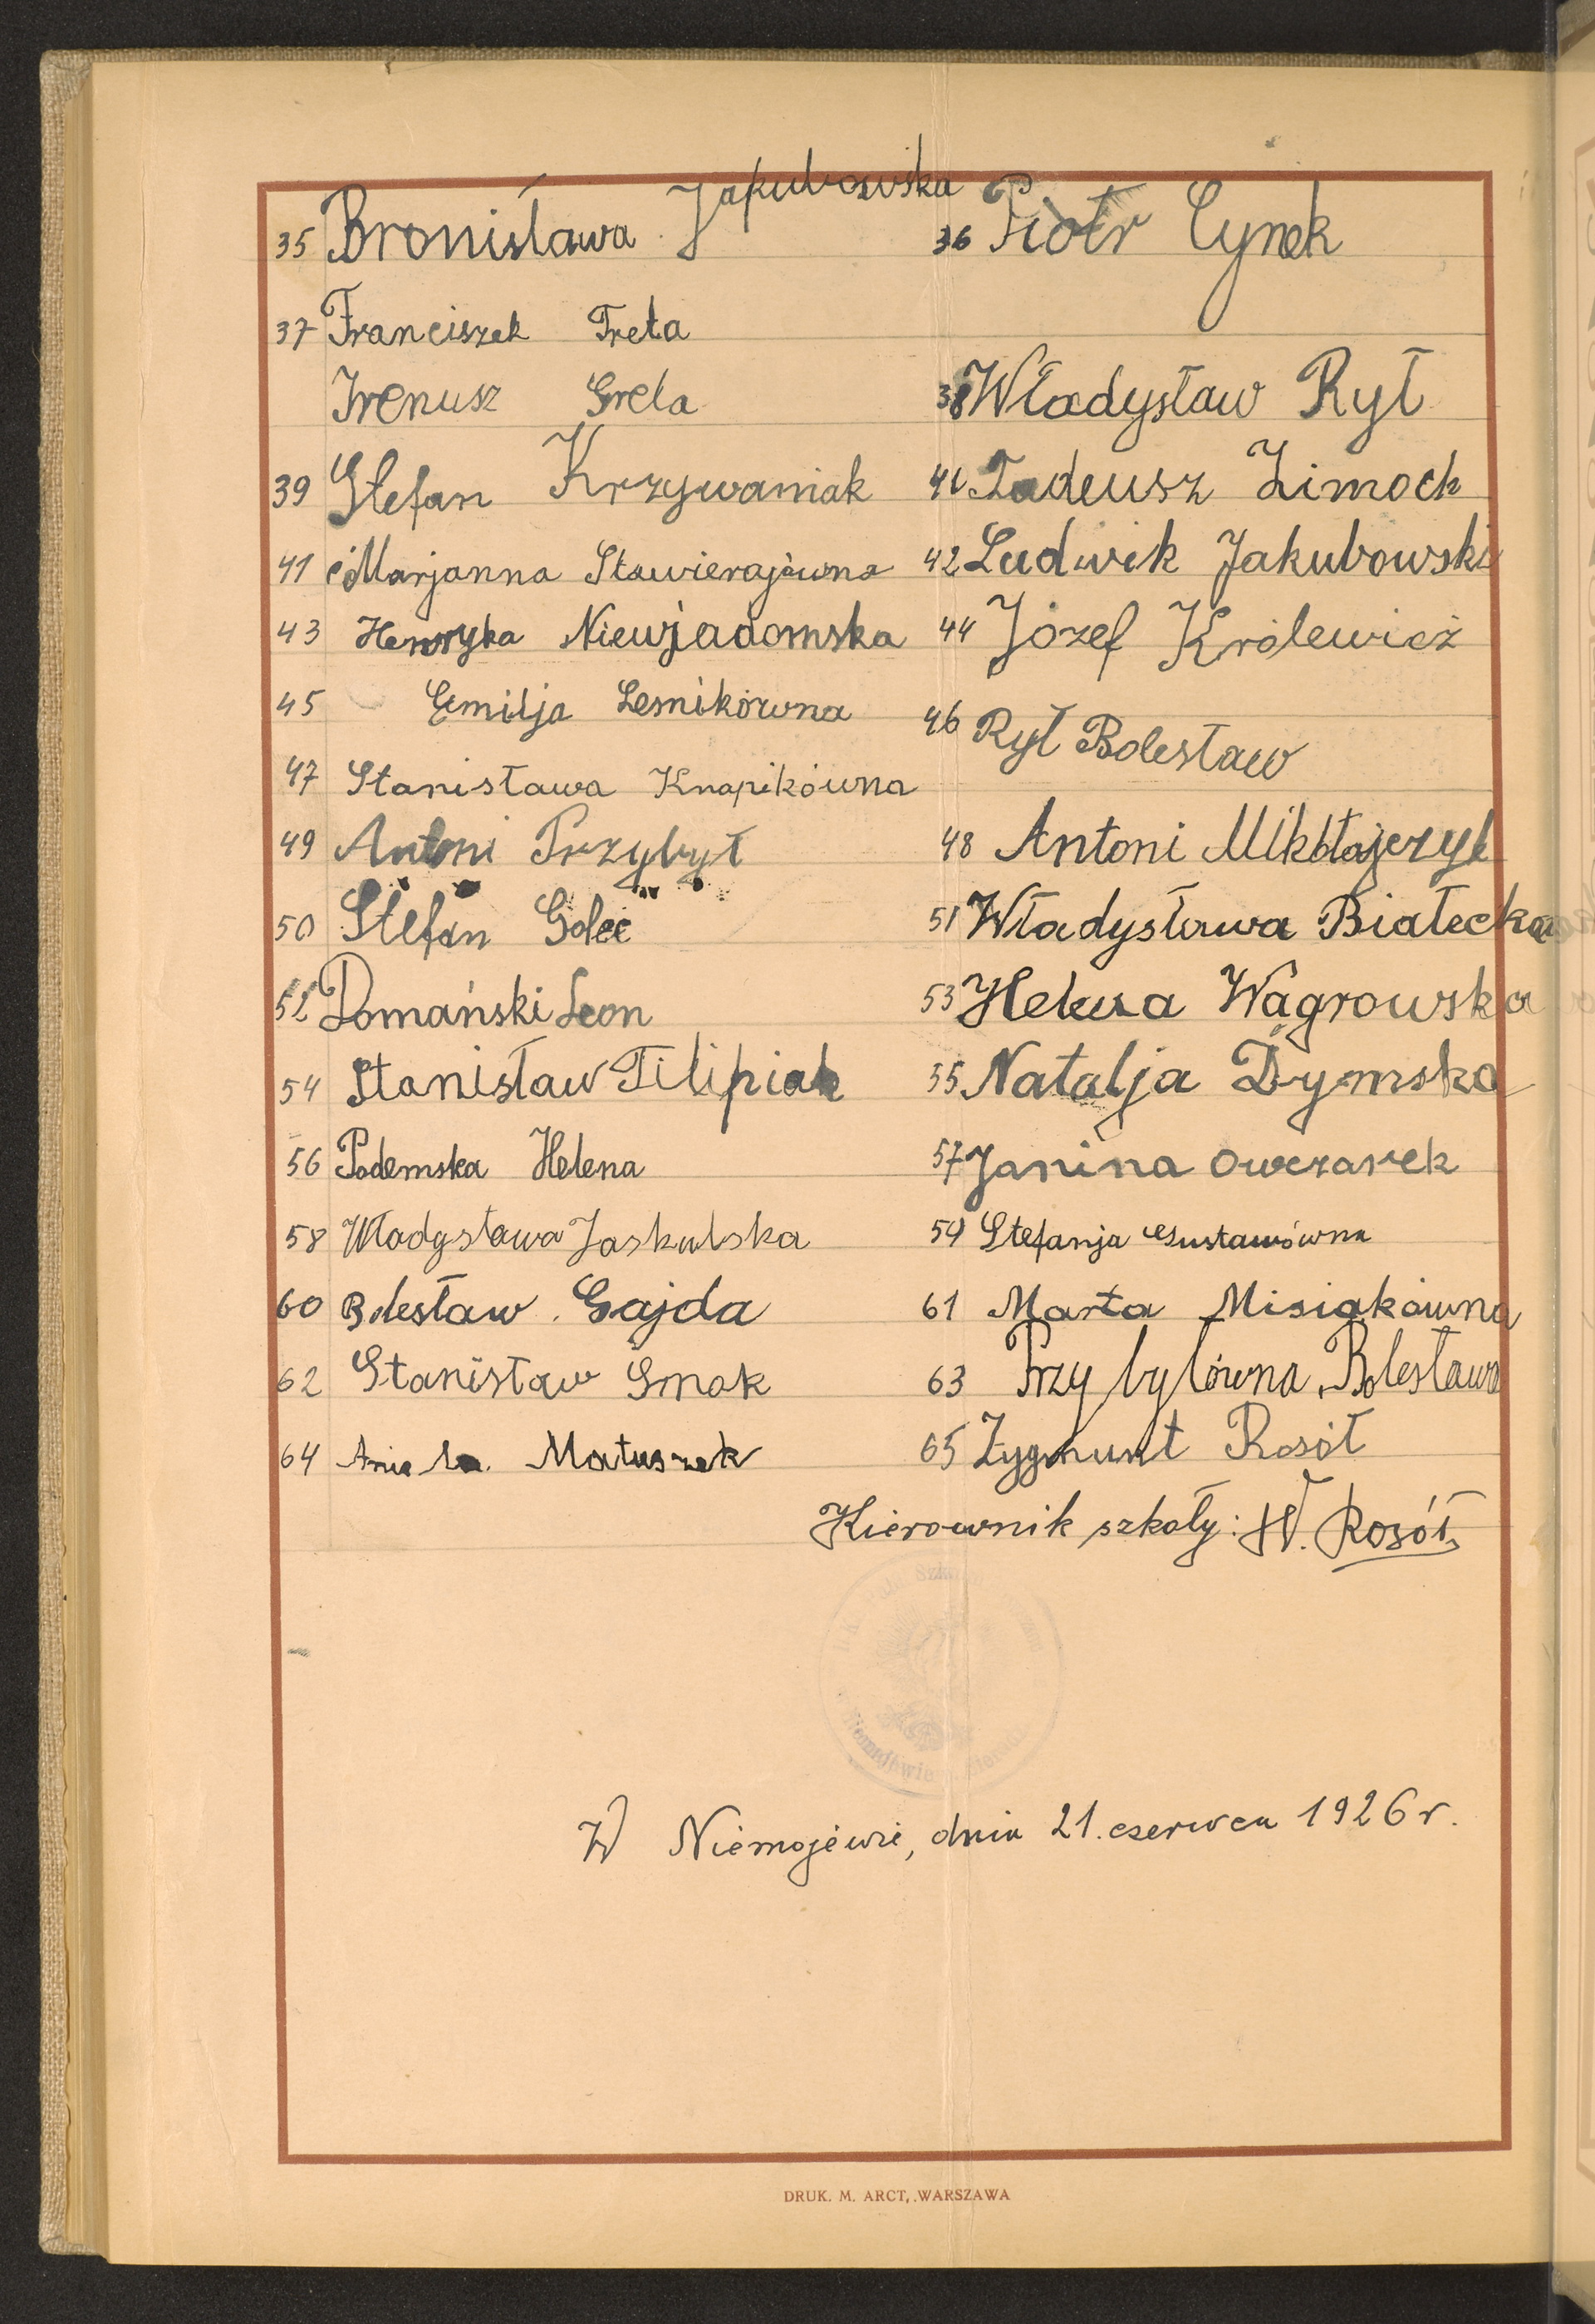 35 Bronisława Jakubowska 36 Piotr Cynek
37 Franciszek Treta
Irenusz Grela 38 Władysław Rył
39 Stefan Krzywaniak 40 Tadeusz Zimoch
41 Marjanna Stawierajówna 42 Ludwik Jakubowski
43 Henryka Niewjadomska 44 Józef Królewicz
45 Emilja Lesnikówna 46 Rył Bolesław
47 Stanisława Knapikówna
49 Antoni Przybył 48 Antoni Mikołajczyk
50 Stefan Golec 51 Władysława Białecka
52 Domański Leon 53 Helena Wągrowska
54 Stanisław Filipiak 55 Natalja Dymska
56 Podemska Helena 57 Janina Owczarek
58 Władysława Jaskulska 59 Stefanja Gustawówna
60 Bolesław Gajda 61 Marta Misiakówna
62 Stanisław Smak 63 Przybyłówna Bolesława
64 Aniela Matuszak 65 Zygmunt Rosół
Kierownik szkoły: W. Rosół
W Niemojewie, dnia 21. czerwca 1926 r.
DRUK. M. ARCT, WARSZAWA